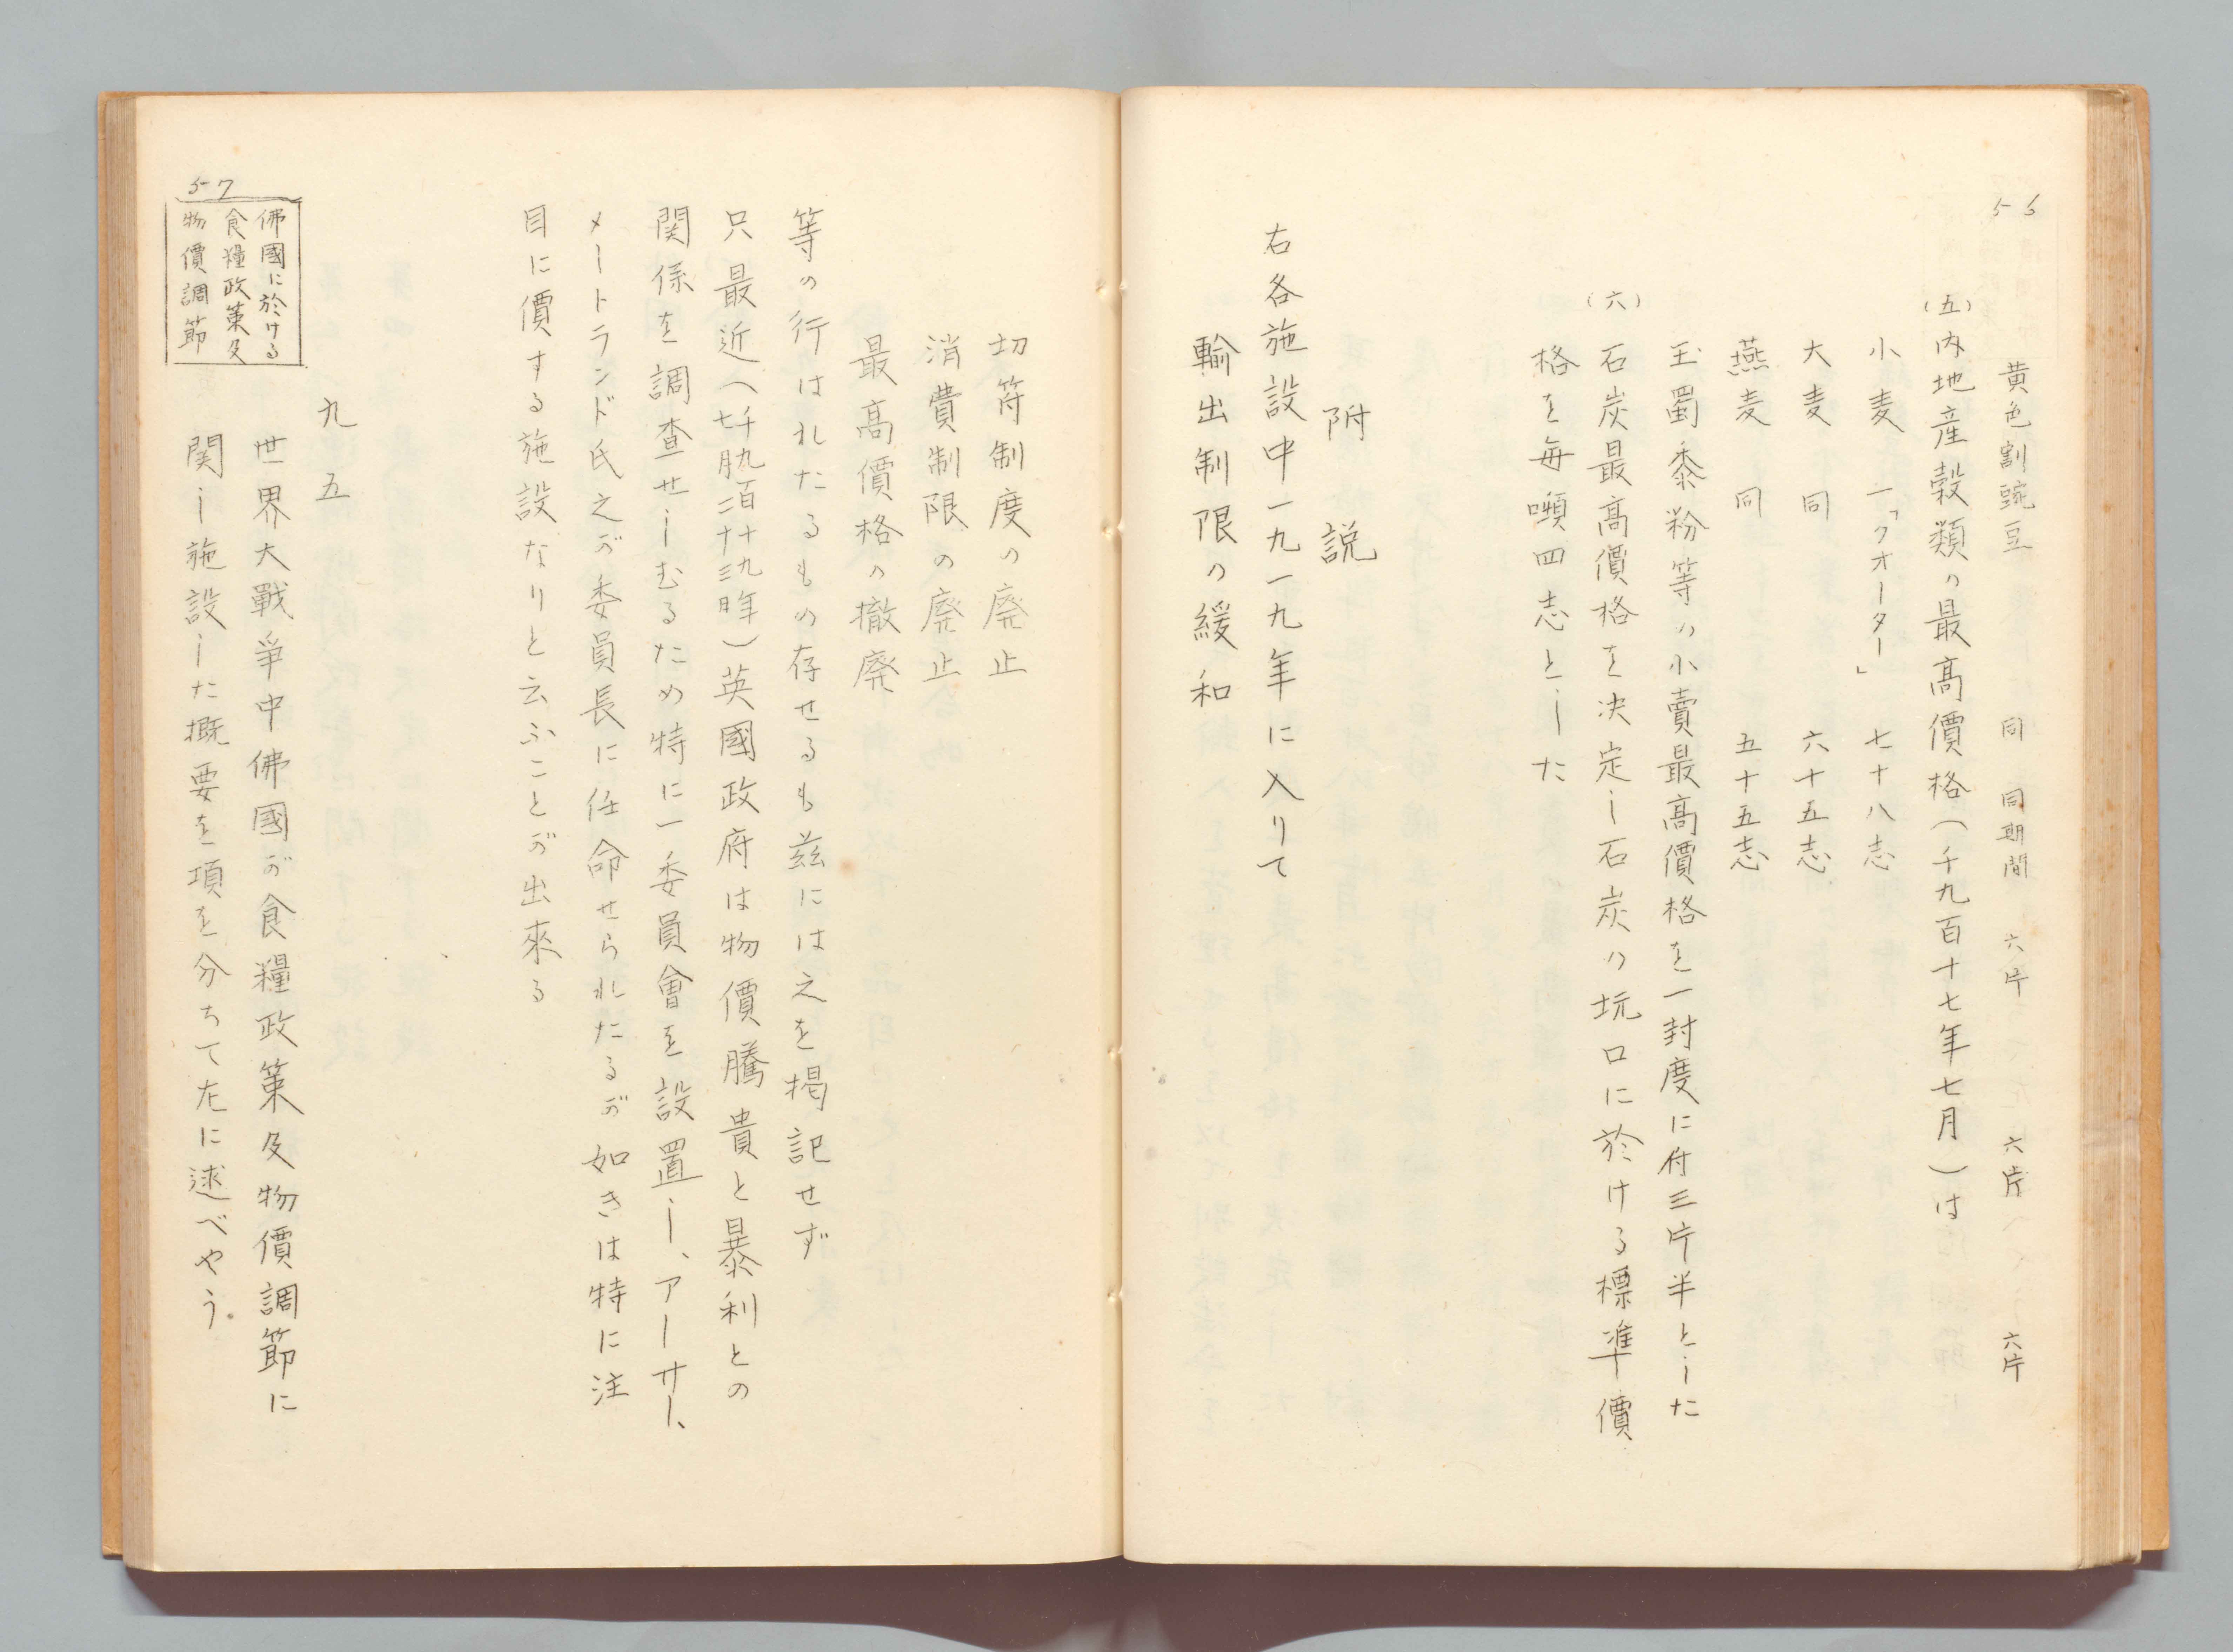 56
黄色割豌豆 同 同期間 六片 六片 六片
(五)内地産穀類の最高價格(千九百十七年七月)は
小麦 一「クオーター」 七十八志
大麦 同 六十五志
燕麦 同 五十五志
玉蜀黍粉等の小賣最高價格を一封度に付三片半とした
(六)石炭最高價格を決定し石炭の坑口に於ける標準價
格を毎噸四志とした
附説
右各施設中一九一九年に入りて
輸出制限の緩和
切符制度の廃止
消費制限の廃止
最高價格の撤廃
等の行はれたるもの存せるも茲には之を掲記せず
只最近(千九百十九年七月二十三日)英國政府は物價騰貴と暴利との
関係を調査せしむるため特に一委員會を設置し、アーサー、
メートランド氏之が委員長に任命せられたるが如きは特に注
目に價する施設なりと云ふことが出來る
57
佛國に於ける
食糧政策及
物價調節
九五
世界大戰爭中佛國が食糧政策及物價調節に
関し施設した概要を項を分ちて左に逑べやう。